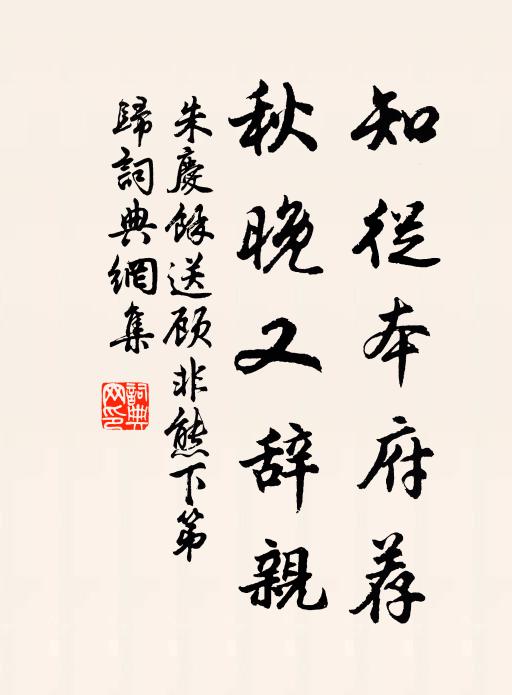 知從本府荐
秋晚又辞親
朱慶餘送顾非熊下第
歸詞典網集
詞典
网印